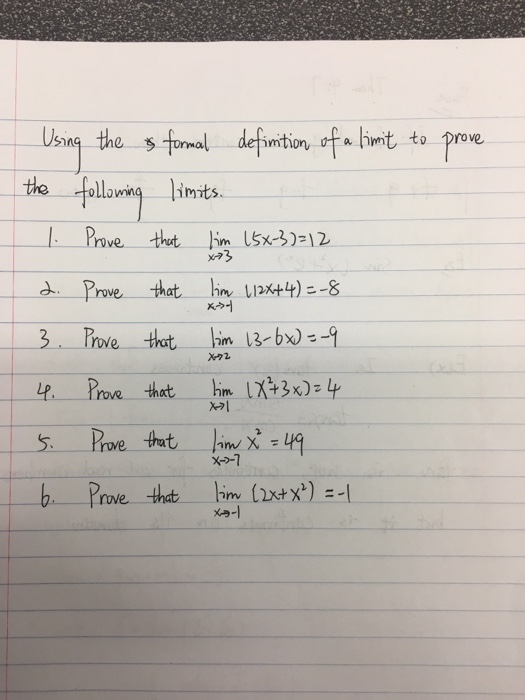 Using the formal definition of a limit to prove
the following limits.
1. Prove that lim (5x-3)=12
x→3
2. Prove that lim (12x+4)=-8
x→-1
3. Prove that lim (3-6x)=-9
x→2
4. Prove that lim (x²+3x)=4
x→1
5. Prove that lim x²=49
x→-7
6. Prove that lim (2x+x²)=-1
x→-1